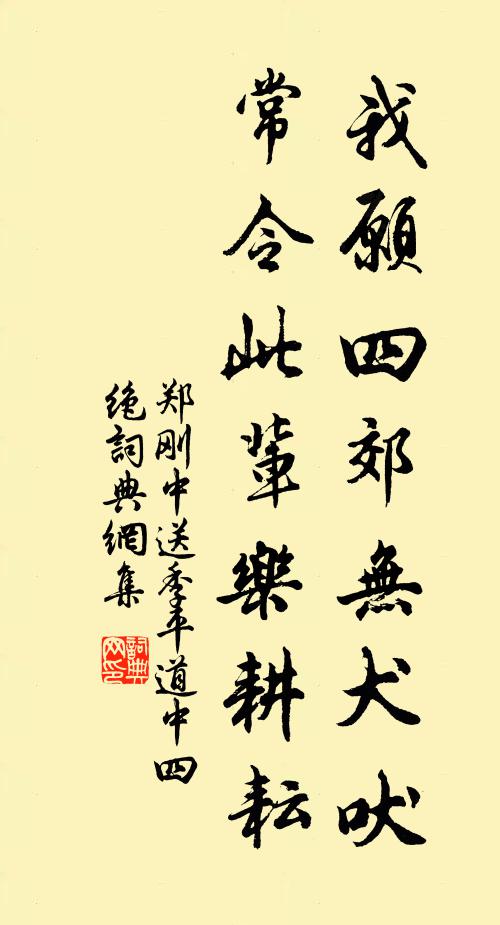 我願四郊無犬吠
常令此輩樂耕耘
郑刚中送季平道中四
绝詞典網集
詞典网印